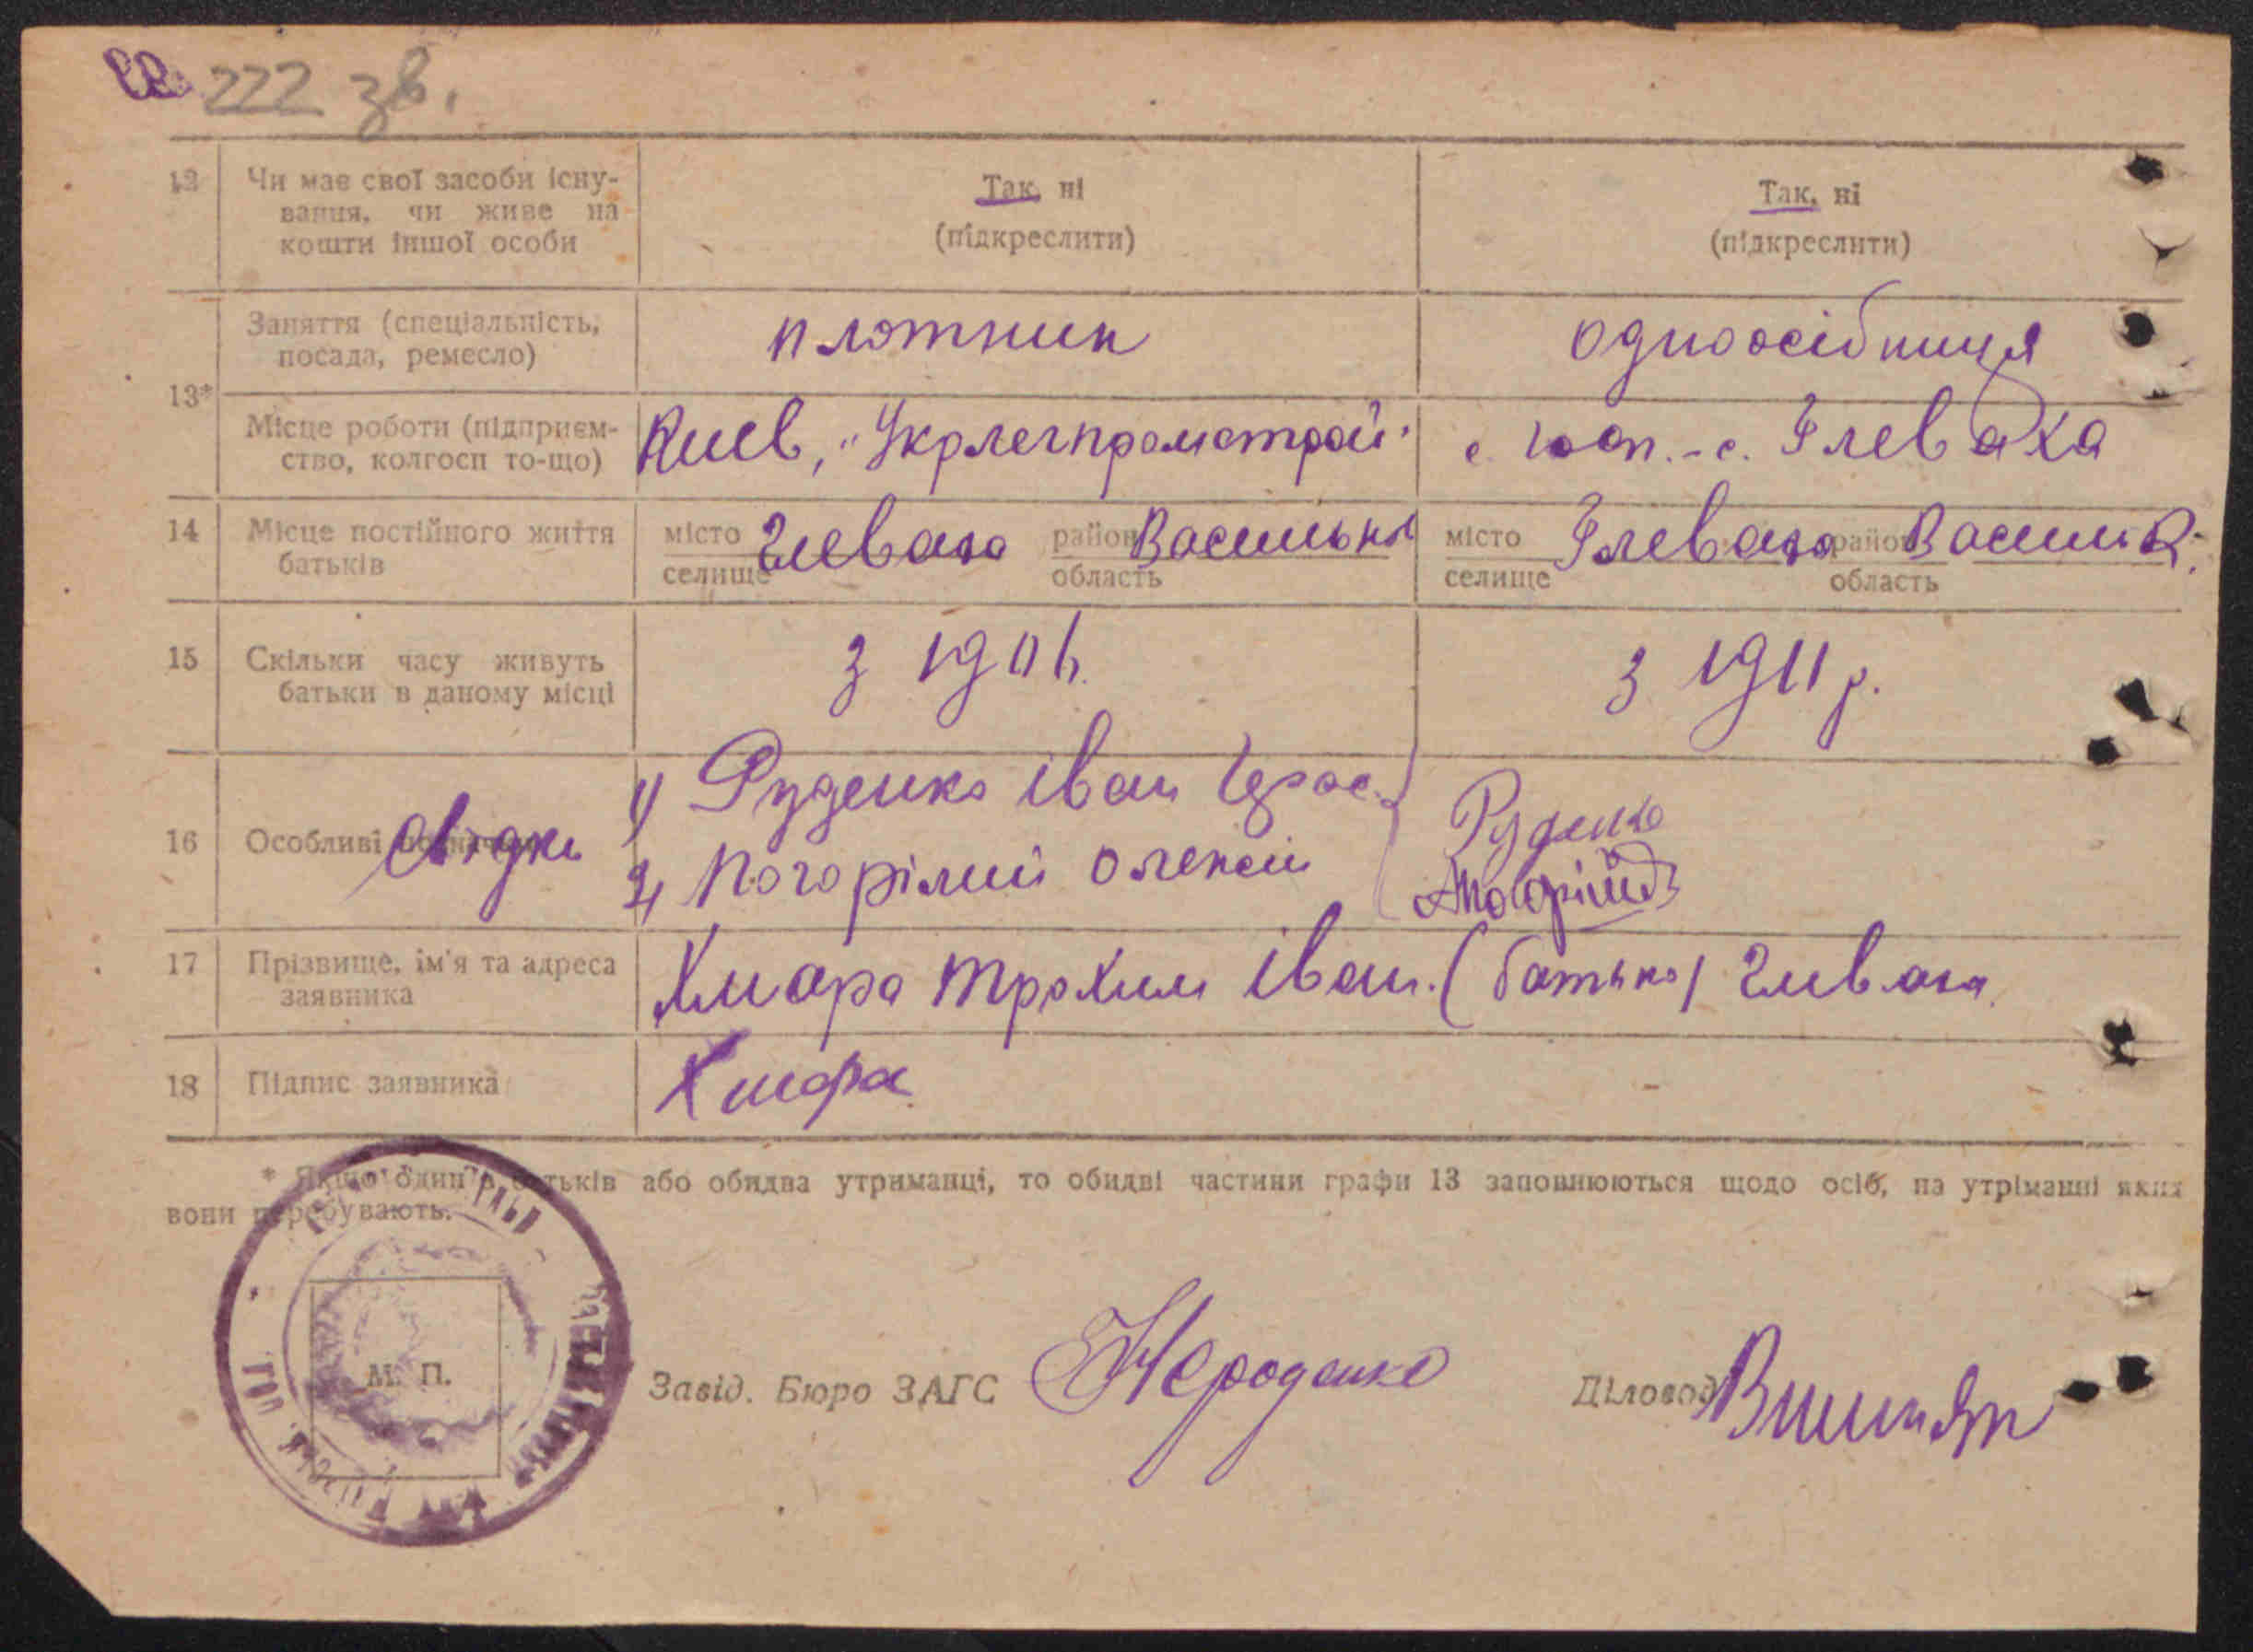 222 зв.
12 Чи має свої засоби існу-
вання, чи живе на
кошти іншої особи
Так, ні
(підкреслити)
Так, ні
(підкреслити)
13*
Заняття (спеціальність,
посада, ремесло)
плотник
одноосібниця
Місце роботи (підприєм-
ство, колгосп то-що)
Киев, "Укрлегпромстрой"
с. госп. - с. Глеваха
14 Місце постійного життя
батьків
місто
селище
Глеваха
район
область
Васильк
місто
селище
Глеваха
район
область
Васильк.
15 Скільки часу живуть
батьки в даному місці
з
з 1911 р.
16 Особливі
Свідки
1) Руденко Іван
2) Погорілий Олексій
Руденко
17 Прізвище, ім'я та адреса
заявника
Хмара Трохим Іван. (батько) Глеваха
18 Підпис заявника
Хмара
* Якщо один з батьків або обидва утриманці, то обидві частини графи 13 заповнюються щодо осіб, на утріманні яких
вони перебувають.
М. П.
Завід. Бюро ЗАГС
Нероденко
Діловод